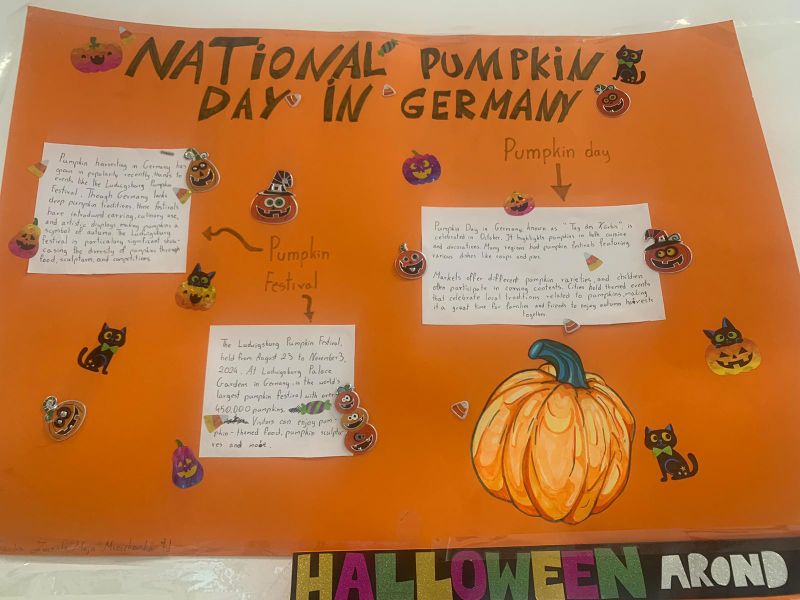 NATIONAL PUMPKIN
DAY IN GERMANY
Pumpkin harvesting in Germany has
grown in popularity recently, thanks to
events like the Ludwigsburg Pumpkin
Festival. Though Germany lacks
deep pumpkin traditions, these festivals
have introduced carving, culinary use,
and artistic displays making pumpkins a
symbol of autumn. The Ludwigsburg
festival is particulary significant show-
casing the diversity of pumpkins through
food, sculptures, and competitions.
Pumpkin
Festival
The Ludwigsburg Pumpkin Festival,
held from August 23 to November 3,
2024. At Ludwigsburg Palace
Gardens in Germany, is the world's
largest pumpkin festival with over
450,000 pumpkins.
Visitors can enjoy pum-
pkin-themed food, pumpkin sculptu-
res and more.
Pumpkin day
Pumpkin Day in Germany, known as "Tag des Kürbis", is
celebrated in October. It highlights pumpkins in both cuisine
and decorations. Many regions had pumpkin festivals featuring
various dishes like soups and pies.
Markets offer different pumpkin varieties, and children
often participate in carving contests. Cities hold themed events
that celebrate local traditions related to pumpkins, making
it a great time for families and friends to enjoy autumn harvests
together.
HALLOWEEN AROND